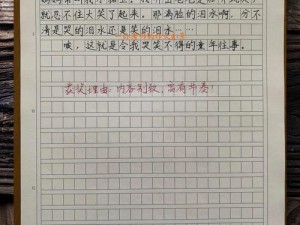 就忍不住大笑了起来。那满脸的泪水啊，分不
清是哭的泪水还是笑的泪水……
唉，这就是令我哭笑不得的童年往事。
获奖理由：内容别致，富有节奏！